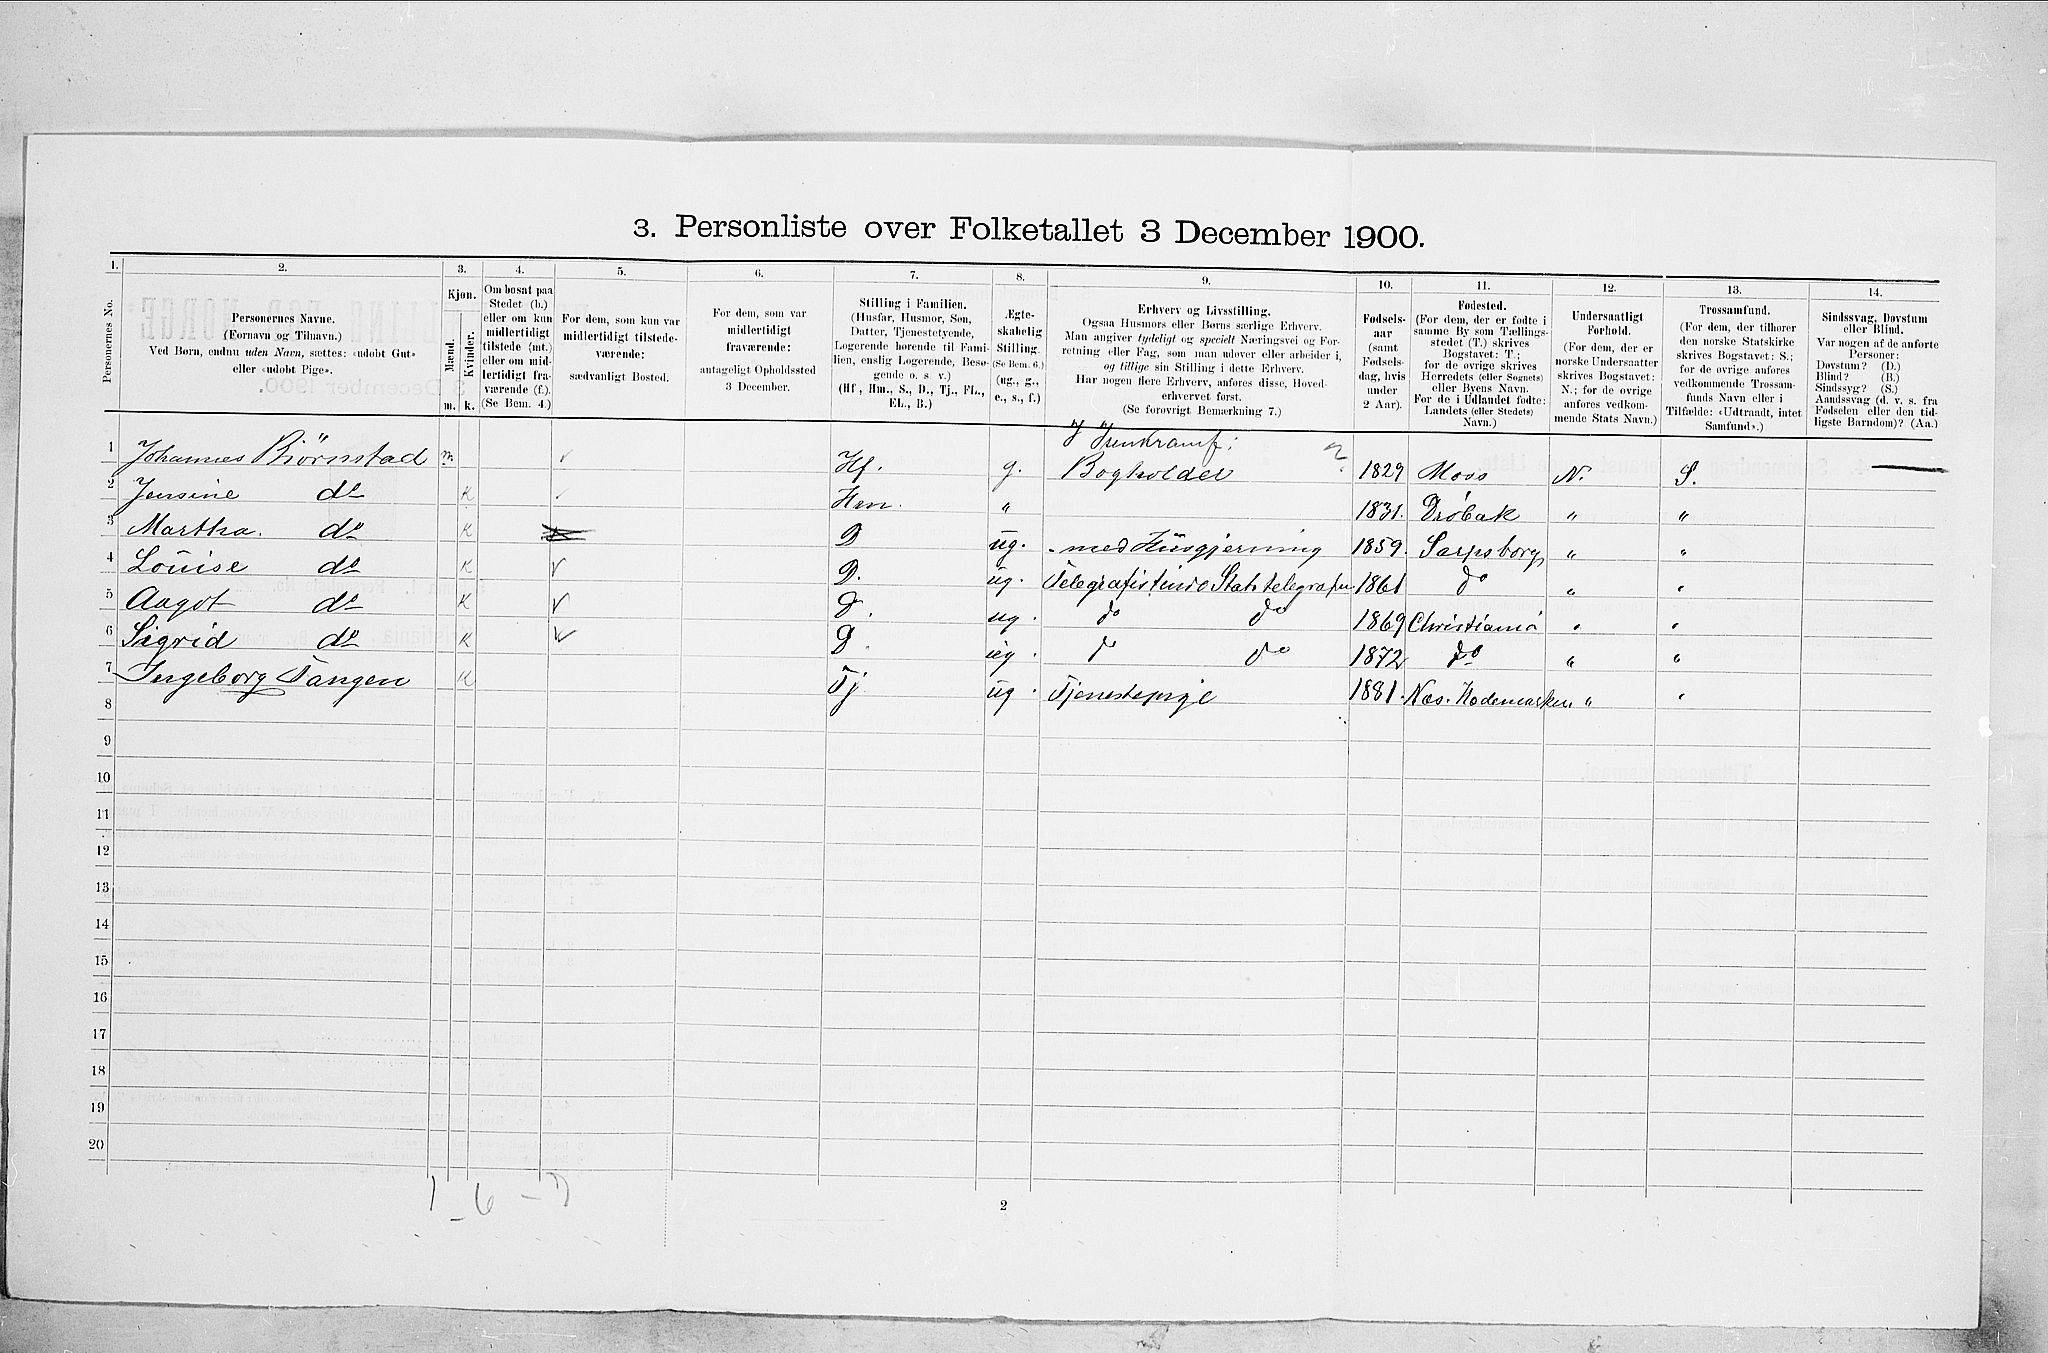 3. Personliste over Folketallet 3 December 1900.
1. 2. 3. 4. 5. 6. 7. 8. 9. 10. 11. 12. 13. 14.
Personernes No.
Personernes Navne.
(Fornavn og Tilnavn.)
Ved Børn, endnu uden Navn, sættes: «udøbt Gut»
eller «udøbt Pige».
Kjøn.
Mænd.
Kvinder.
m. k.
Om bosat paa
Stedet (b.)
eller om kun
midlertidigt
tilstede (mt.)
eller om mid-
lertidigt fra-
værende (f.).
(Se Bem. 4.)
For dem, som kun var
midlertidigt tilstede-
værende:
sædvanligt Bosted.
For dem, som var
midlertidigt
fraværende:
antageligt Opholdssted
3 December.
Stilling i Familien.
(Husfar, Husmor, Søn,
Datter, Tjenestetyende,
Logerende hørende til Fami-
lien, enslig Logerende, Besø-
gende o. s. v.)
(Hf, Hm., S., D., Tj., FL.,
EL., B.)
Ægte-
skabelig
Stilling.
(Se Bem. 6.)
(ug., g.,
e., s., f.)
Erhverv og Livsstilling.
Ogsaa Husmors eller Børns særlige Erhverv.
Man angiver tydeligt og specielt Næringsvei og For-
retning eller Fag, som man udøver eller arbeider i,
og tillige sin Stilling i dette Erhverv.
Har nogen flere Erhverv, anføres disse, Hoved-
erhvervet først.
(Se forøvrigt Bemærkning 7.)
Fødsels-
aar
(samt
Fødsels-
dag, hvis
under
2 Aar).
Fødested.
(For dem, der er fødte i
samme By som Tællings-
stedet (T.) skrives
Bogstavet: T.;
for de øvrige skrives
Herredets (eller Sognets)
eller Byens Navn.
For de i Udlandet fødte:
Landets (eller Stedets)
Navn.)
Undersaatligt
Forhold.
(For dem, der er
norske Undersaatter
skrives Bogstavet:
N.; for de øvrige
anføres vedkom-
mende Stats Navn.)
Trossamfund.
(For dem, der tilhører
den norske Statskirke
skrives Bogstavet: S.;
for de øvrige anføres
vedkommende Trossam-
funds Navn eller i
Tilfælde: «Udtraadt, intet
Samfund».)
Sindssvag, Døvstum
eller Blind.
Var nogen af de anførte
Personer:
Døvstum? (D.)
Blind? (B.)
Sindssyg? (S.)
Aandssvag (d. v. s. fra
Fødselen eller den tid-
ligste Barndom)? (Aa.)
1 Johannes Biörnstad m. Hf. g. Bogholder 1829 Moss N. S.
2 Jensine do K Hm. " 1831. Drøbak " "
3 Martha. do K D ug. med Husgjerning 1859. Sarpsborg " "
4 Louise do K D. ug. Telegrafistinde Statstelegrafen 1861 do " "
5 Aagot do K D. ug. do do 1869 Christiania " "
6 Sigrid do K D. ug. do do 1872 do " "
7 Ingeborg Tangen K Tj ug. Tjenestepige 1881. Næs. Hedemarken " "
8
9
10
11
12
13
14
15
16
17
18
19
20
1 - 6 - 7
2